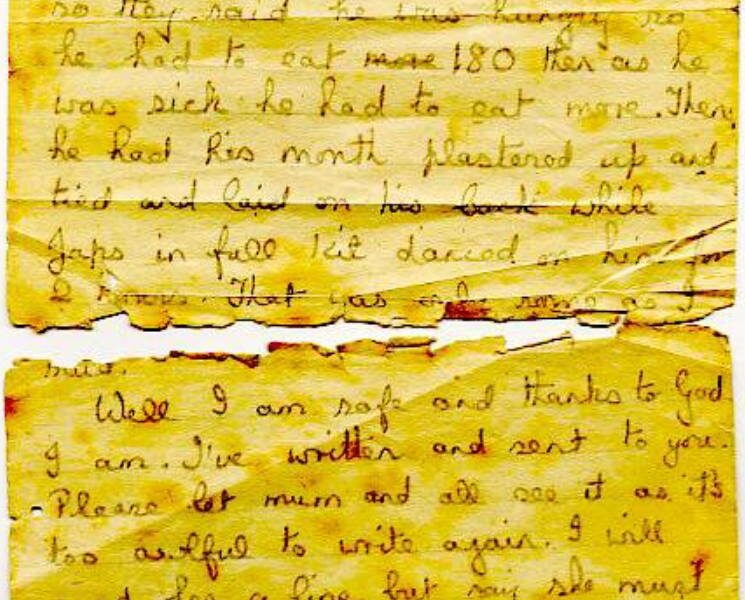 so they said he was hungry so
he had to eat more 180 then as he
was sick he had to eat more. Then
he had his month plastered up and
tied and laid on his back while
Japs in full kit danced on him for
2 hours. That was only some as I
Well I am safe and thanks to God
I am. I've written and sent to you.
Please let mum and all see it as it's
too awlful to write again. I will
a line but say she must